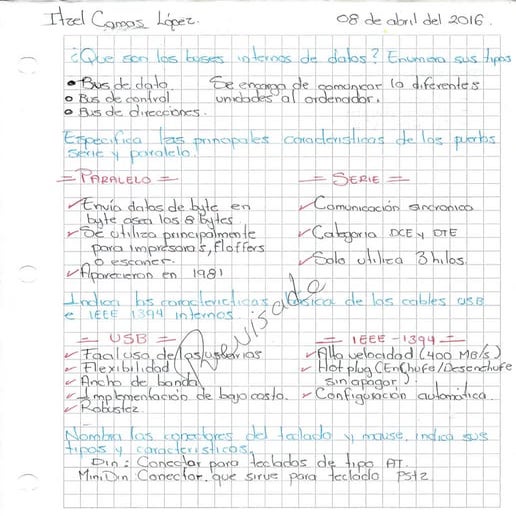 Itzel Camas López. 08 de abril del 2016.
¿Que son los buses internos de datos? Enumera sus tipos
• Bus de dato Se encarga de comunicar la diferentes
• Bus de control unidades al ordenador.
• Bus de direcciones.
Especifica las principales caracteristicas de los puertos
serie y paralelo.
= PARALELO =
✓ Envía datos de byte en
byte osea los 8 bytes
✓ Se utiliza principalmente
para impresoras, Floffers
o escaner.
✓ Aparecieron en 1981
= SERIE =
✓ Comunicación sincronica
✓ Categoria DCE y DTE
✓ Solo utiliza 3 hilos.
Indica las caracteristicas básica de los cables USB
e IEEE 1394 internos.
Revisado
= USB =
✓ Facil uso de los usuarios
✓ Flexibilidad
✓ Ancho de banda
✓ Implementación de bajo costo.
✓ Robustez.
= IEEE-1394 =
✓ Alta velocidad (400 MB/s)
✓ Hot plug (Enchufe/Desenchufe
sin apagar)
✓ Configuración automática.
Nombra los conectores del teclado y mouse, indica sus
tipos y caracteristicas.
Din: Conector para teclados de tipo AT.
MiniDin: Conector que sirve para teclado PS+2